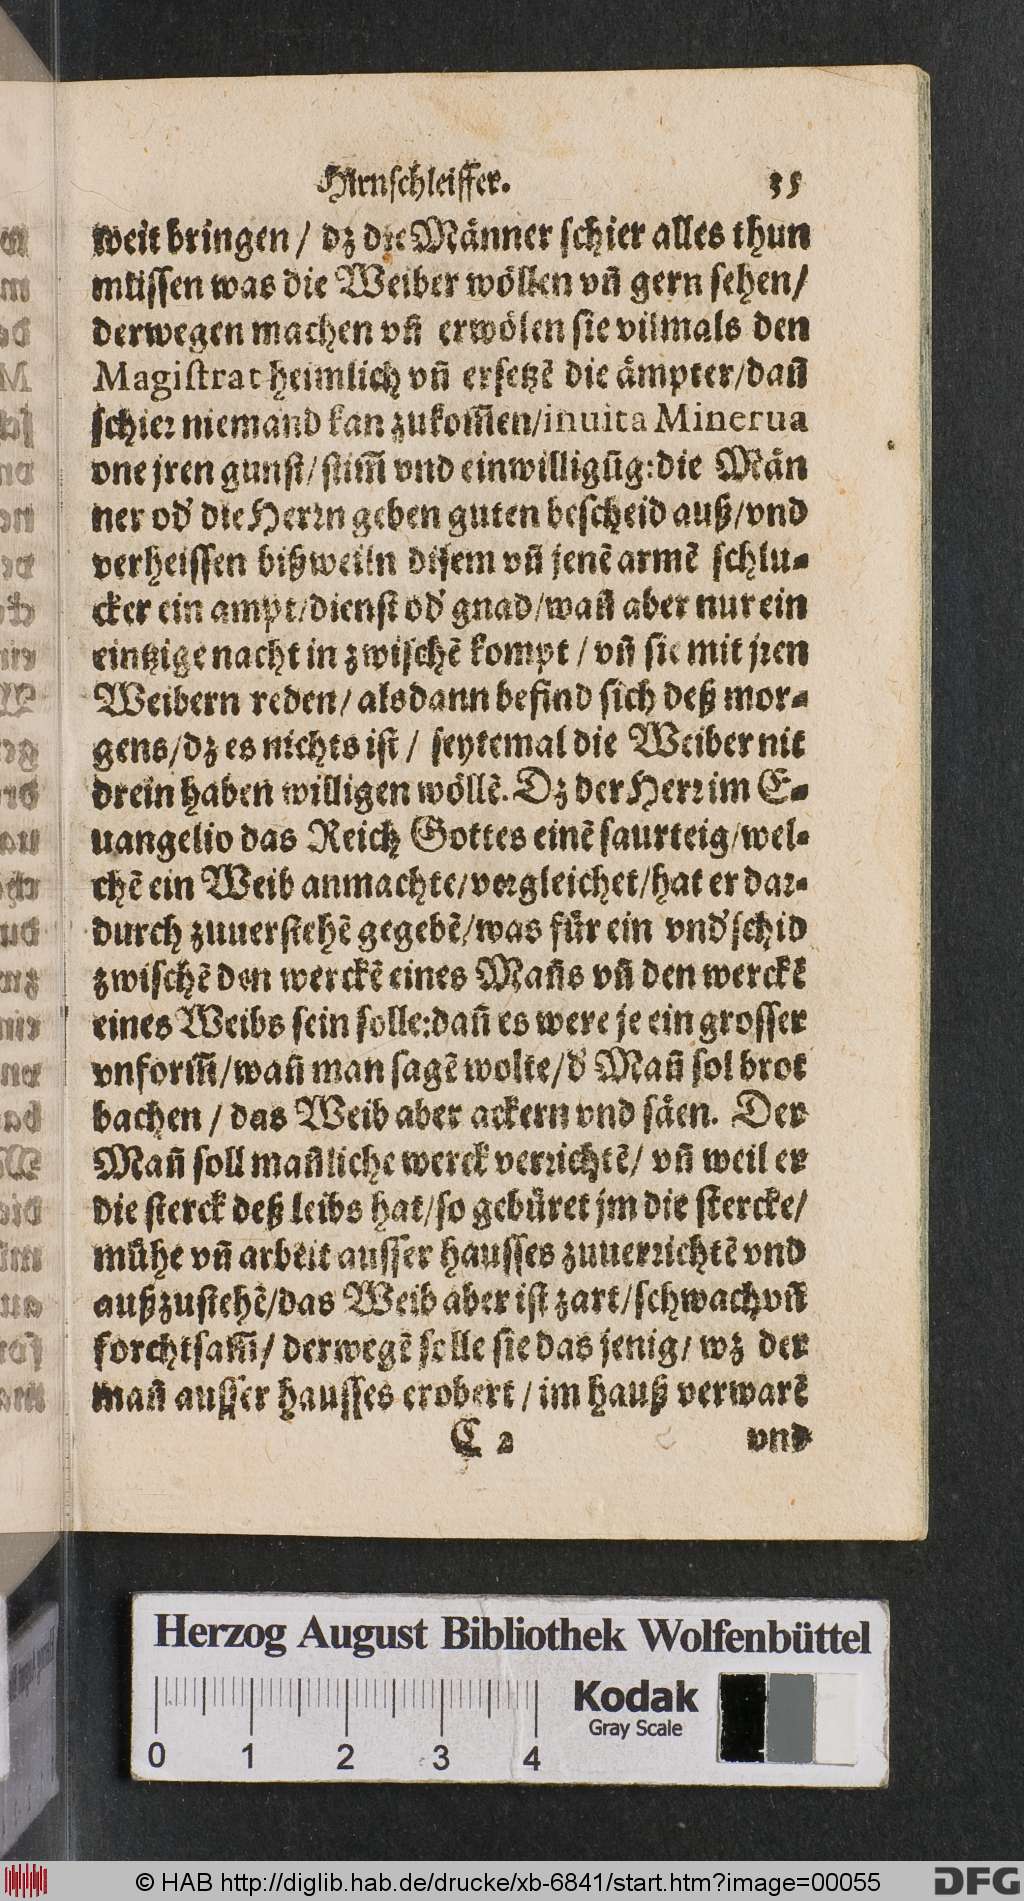 Hirnschleiffer. 35
weit bringen / dz die Männer schier alles thun
müssen was die Weiber wöllen vñ gern sehen/
derwegen machen vñ erwölen sie vilmals den
Magistrat heimlich vñ ersetzē die ämpter/dañ
schier niemand kan zukom̃en/inuita Minerua
one jren gunst/stim̃ vnd einwilligūg:die Män
ner od' die Herrn geben guten bescheid auß/vnd
verheissen bißweiln disem vñ jenē armē schlu-
cker ein ampt/dienst od' gnad/wañ aber nur ein
eintzige nacht in zwischē kompt / vñ sie mit jren
Weibern reden/ alsdann befind sich deß mor-
gens/dz es nichts ist / seytemal die Weiber nit
drein haben willigen wöllē. Dz der Herr im E-
uangelio das Reich Gottes einē saurteig/wel-
chē ein Weib anmachte/vergleichet/hat er dar-
durch zuuerstehē gegebē/was für ein vnd'schid
zwischē den werckē eines Mañs vñ den werckē
eines Weibs sein solle:dañ es were je ein grosser
vnform̃/wañ man sagē wolte/d' Mañ sol brot
bachen / das Weib aber ackern vnd säen. Der
Mañ soll mañliche werck verrichtē/ vñ weil er
die sterck deß leibs hat/so gebüret jm die stercke/
mühe vñ arbeit ausser hausses zuuerrichtē vnd
außzustehē/das Weib aber ist zart/schwach vñ
forchtsam̃/ derwegē solle sie das jenig/ wz der
mañ ausser hausses erobert / im hauß verwarē
C 2 vnd
Herzog August Bibliothek Wolfenbüttel
Kodak
Gray Scale
0 1 2 3 4
© HAB http://diglib.hab.de/drucke/xb-6841/start.htm?image=00055 DFG